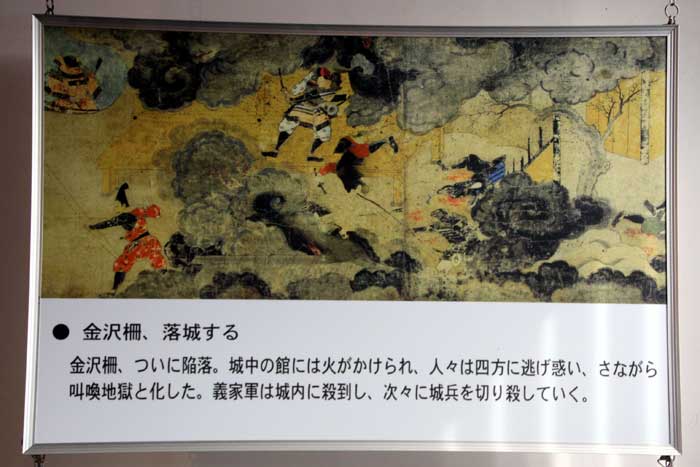 ● 金沢柵、落城する
金沢柵、ついに陥落。城中の館には火がかけられ、人々は四方に逃げ惑い、さながら
叫喚地獄と化した。義家軍は城内に殺到し、次々に城兵を切り殺していく。